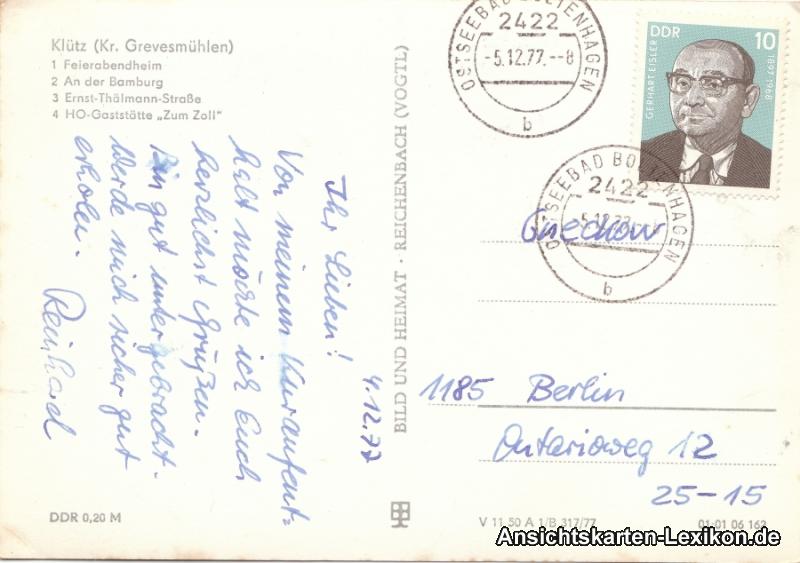 Klütz (Kr. Grevesmühlen)
1 Feierabendheim
2 An der Bamburg
3 Ernst-Thälmann-Straße
4 HO-Gaststätte „Zum Zoll"
Ihr Lieben! 4.12.77
Von meinem Kuraufent-
halt möchte ich Euch
herzlichst Grüßen.
Bin gut untergebracht.
Werde mich sicher gut
erholen.
Reinhard
DDR 0,20 M
BILD UND HEIMAT · REICHENBACH (VOGTL)
OSTSEEBAD BOLTENHAGEN
2422
-5.12.77.--8
b
DDR 10
GERHART EISLER
1897-1968
OSTSEEBAD BOLTENHAGEN
2422
b
1185 Berlin
Ontarioweg 12
25-15
V 11 50 A 1/B 317/77
01 01 06 162
Ansichtskarten-Lexikon.de